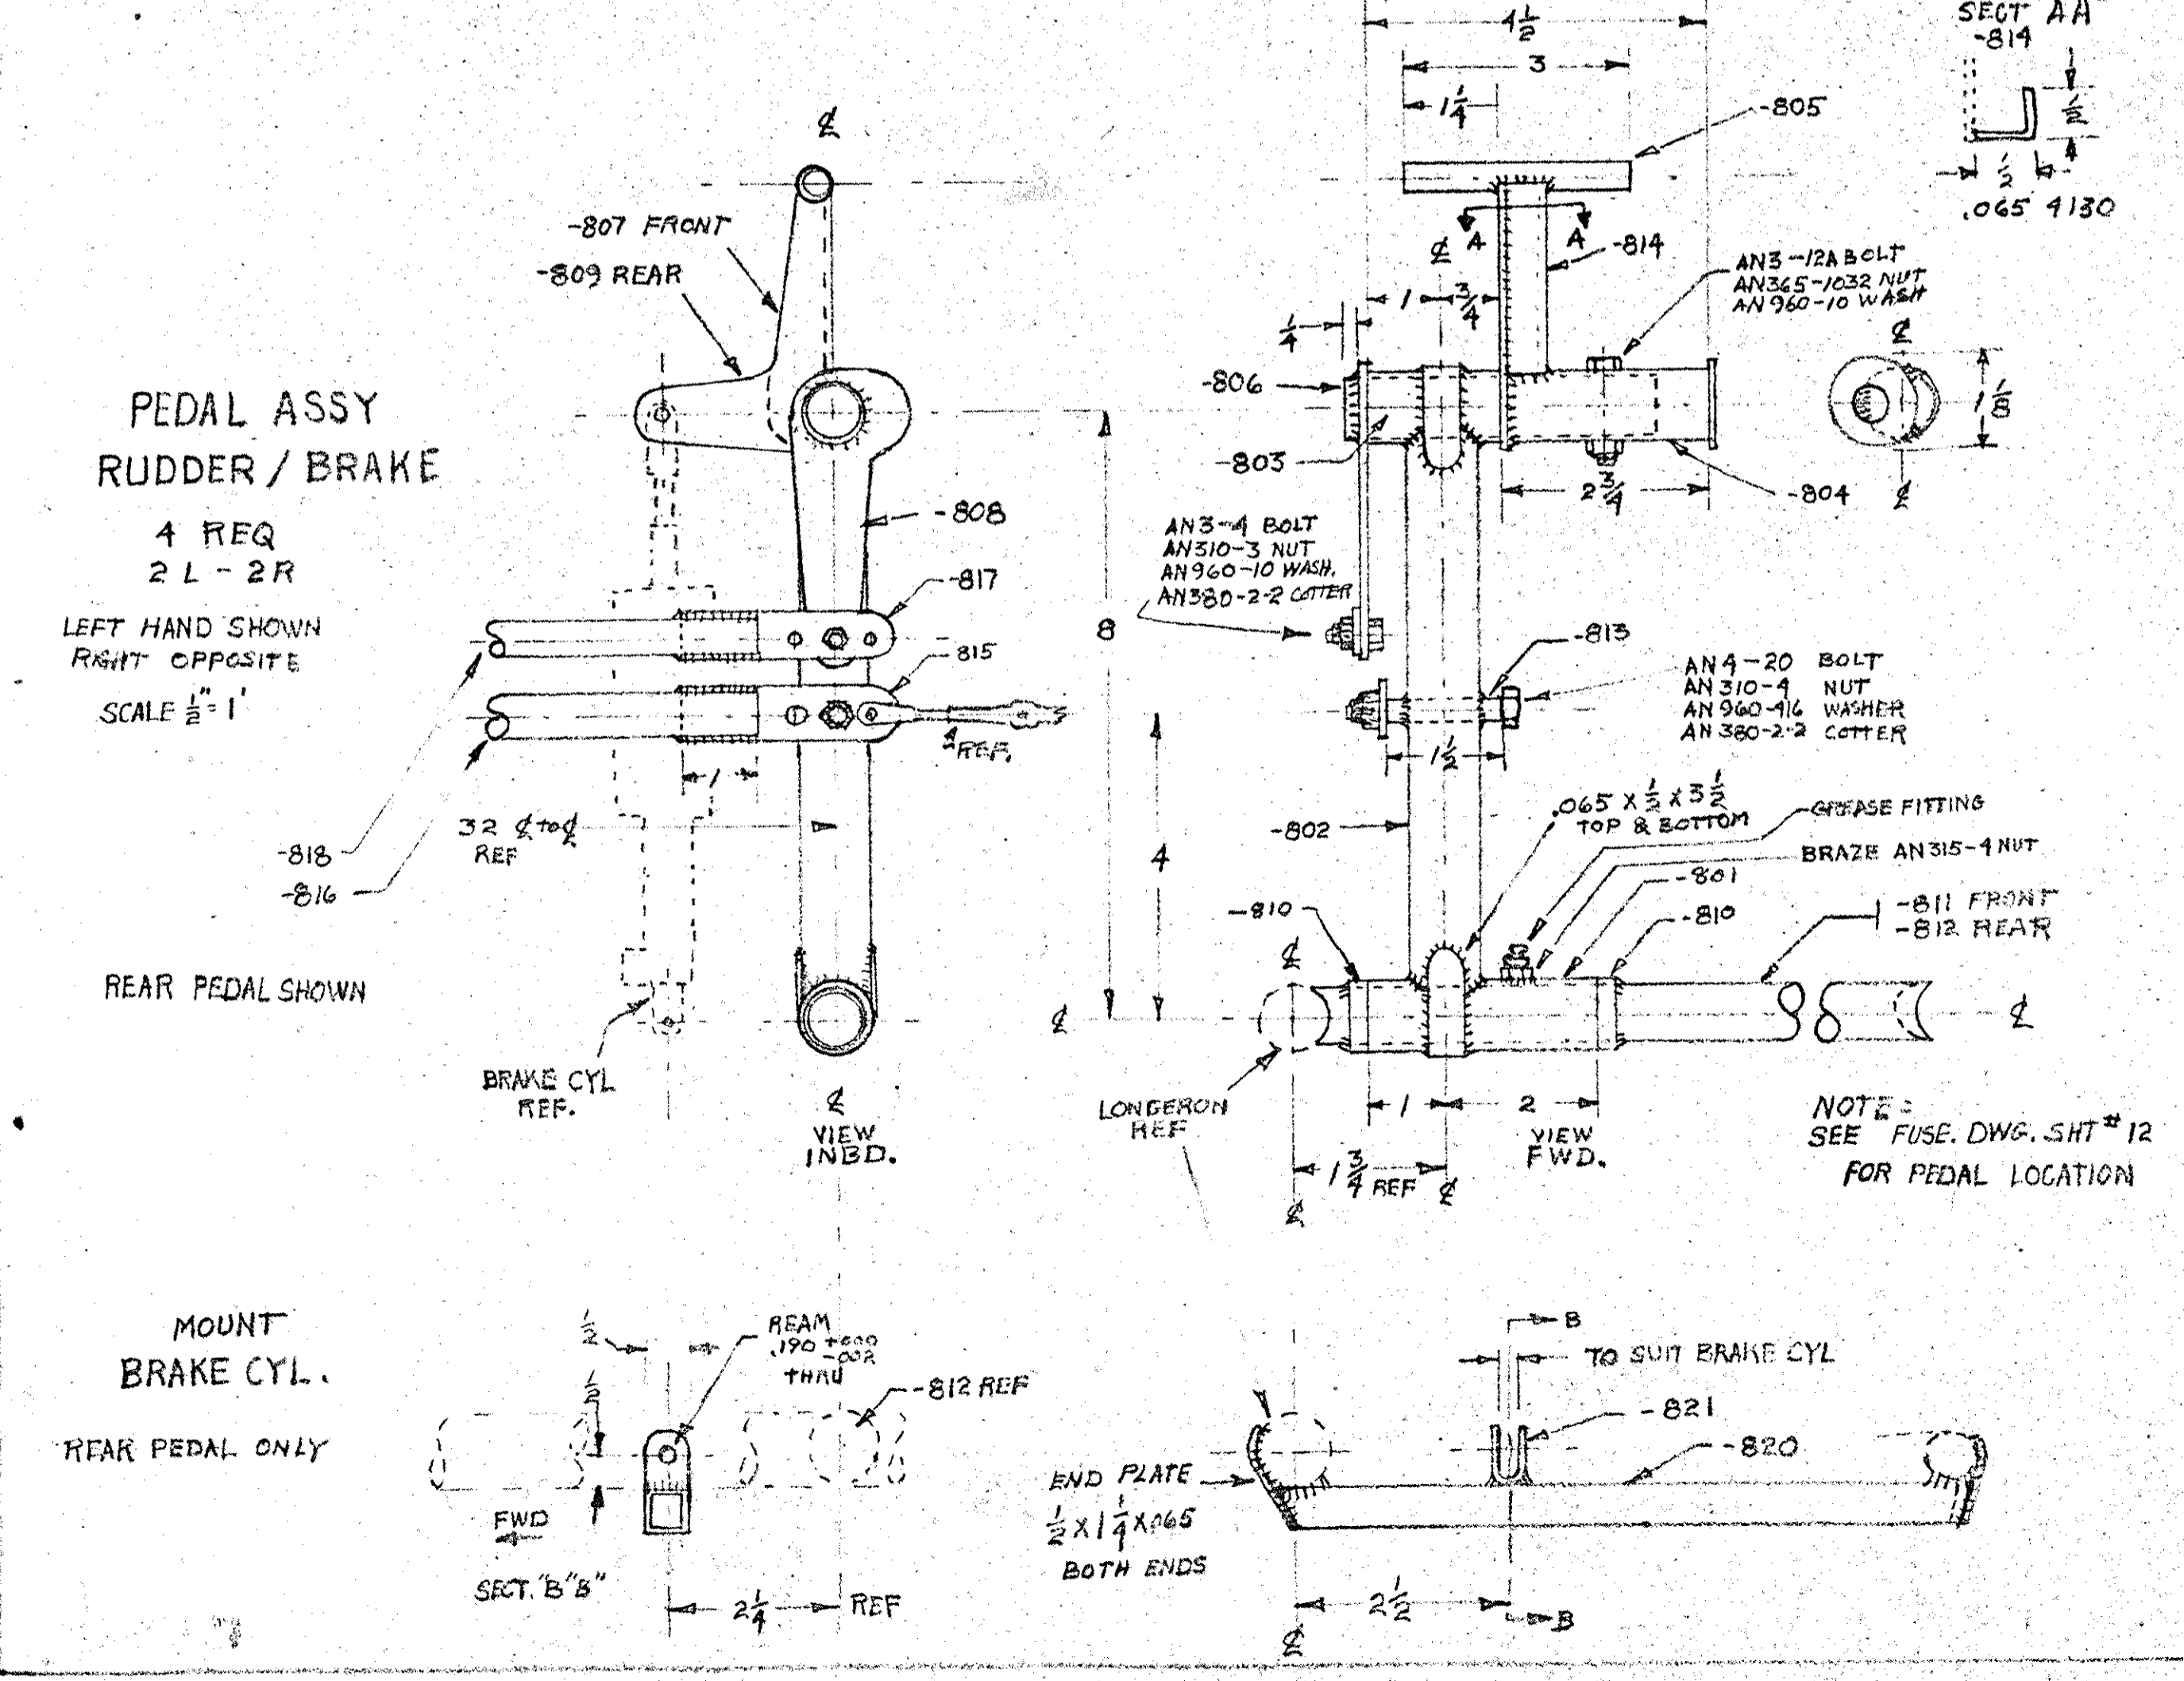 PEDAL ASSY
RUDDER / BRAKE
4 REQ
2 L - 2 R
LEFT HAND SHOWN
RIGHT OPPOSITE
SCALE ½" = 1'
REAR PEDAL SHOWN
℄
-807 FRONT
-809 REAR
-808
-817
815
1
REF.
32 ℄ to ℄
REF
-818
-816
BRAKE CYL
REF.
℄
VIEW
INBD.
4½
3
1¼
-805
SECT AA
-814
½
½
.065 4130
℄
A
A
-814
AN3-12A BOLT
AN365-1032 NUT
AN960-10 WASH
1
¾
¼
-806
-803
2¾
-804
℄
1⅛
℄
AN3-4 BOLT
AN310-3 NUT
AN960-10 WASH.
AN380-2-2 COTTER
8
-813
AN4-20 BOLT
AN310-4 NUT
AN960-416 WASHER
AN380-2-2 COTTER
1½
-802
.065 X ½ X 3½
TOP & BOTTOM
GREASE FITTING
BRAZE AN315-4 NUT
4
-801
-810
-810
-811 FRONT
-812 REAR
℄
℄
℄
LONGERON
REF
1
2
VIEW
FWD.
1¾ REF
℄
℄
NOTE=
SEE FUSE. DWG. SHT # 12
FOR PEDAL LOCATION
MOUNT
BRAKE CYL.
REAR PEDAL ONLY
½
½
REAM
.190 +.000
-.002
THRU
-812 REF
FWD
SECT. "B" B"
2¼ REF
B
TO SUIT BRAKE CYL
-821
-820
END PLATE
½ X 1¼ X .065
BOTH ENDS
2½
B
℄